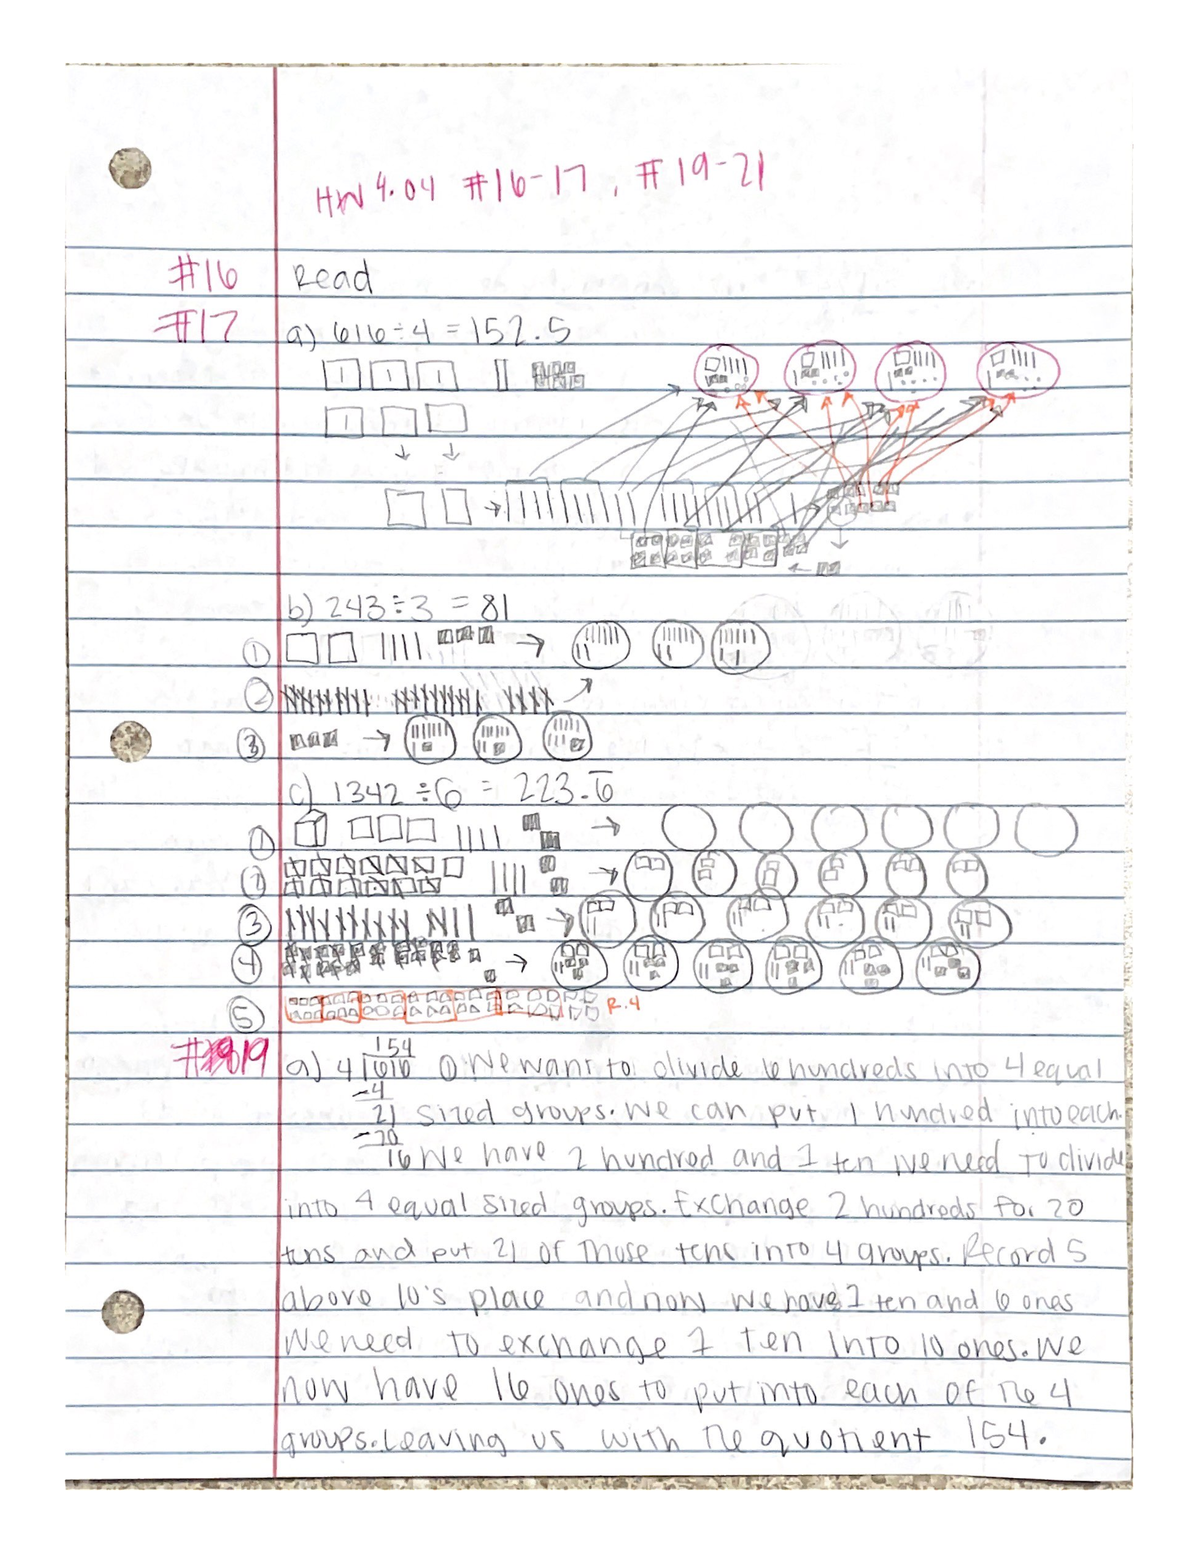 HW 4.04 #16-17, #19-21
#16 Read
#17 a) 616÷4 = 152.5
b) 243÷3 = 81
①
②
③
c) 1342÷6 = 223.6̅
①
②
③
④
⑤ R.4
#19 a) 4 616 154 ① We want to divide 6 hundreds into 4 equal
-4
21 sized groups. We can put 1 hundred into each.
-20
16 We have 2 hundred and 1 ten we need to divide
into 4 equal sized groups. Exchange 2 hundreds for 20
tens and put 21 of those tens into 4 groups. Record 5
above 10's place and now we have 1 ten and 6 ones
We need to exchange 1 ten into 10 ones. We
now have 16 ones to put into each of the 4
groups. Leaving us with the quotient 154.